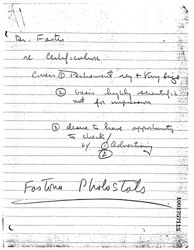 Dr. Foster
re Certification
Covers ① Permanent ing + Very Big
② basis highly scientific
not for impression
③ desire to have opportunity
to check/
by ① Advertising
②
Fostona Photostats